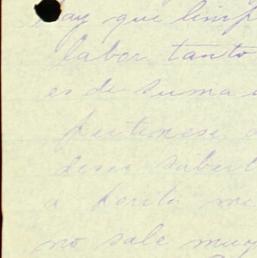 ay que limp
labor tanto
es de suma
pertenese
desea saber
a perito me
no sale muy